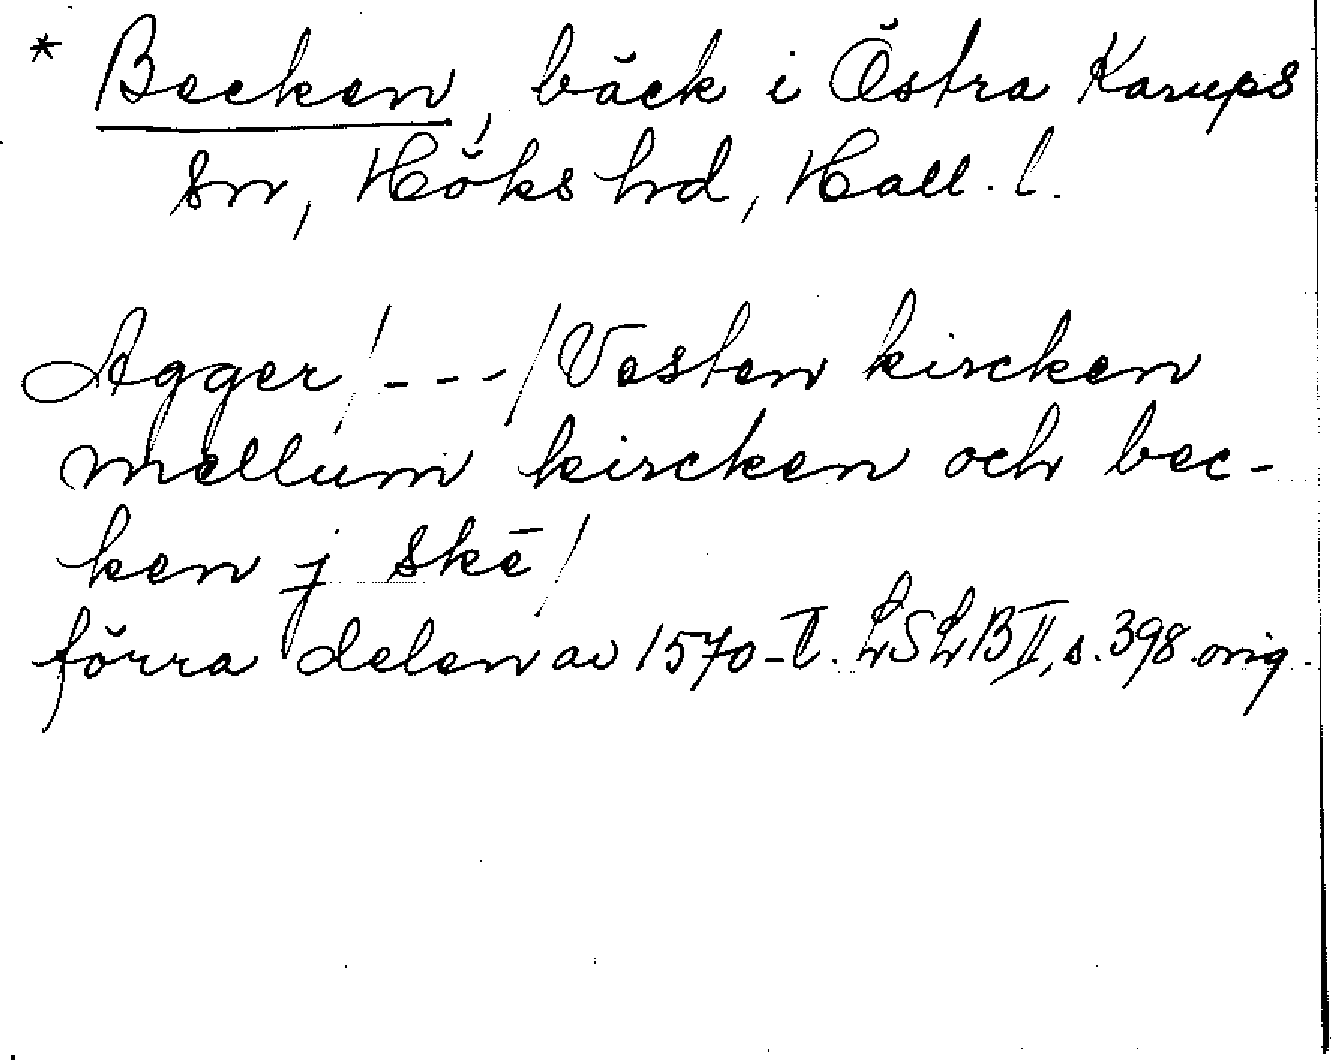 * Becken, bäck i Östra Karups
sn, Höks hrd, Hall. l.
Agger/---/Vesten kircken
mellum kircken och bec-
ken j skē/
förra delen av 1570-t. LSLB II, s. 398 orig.